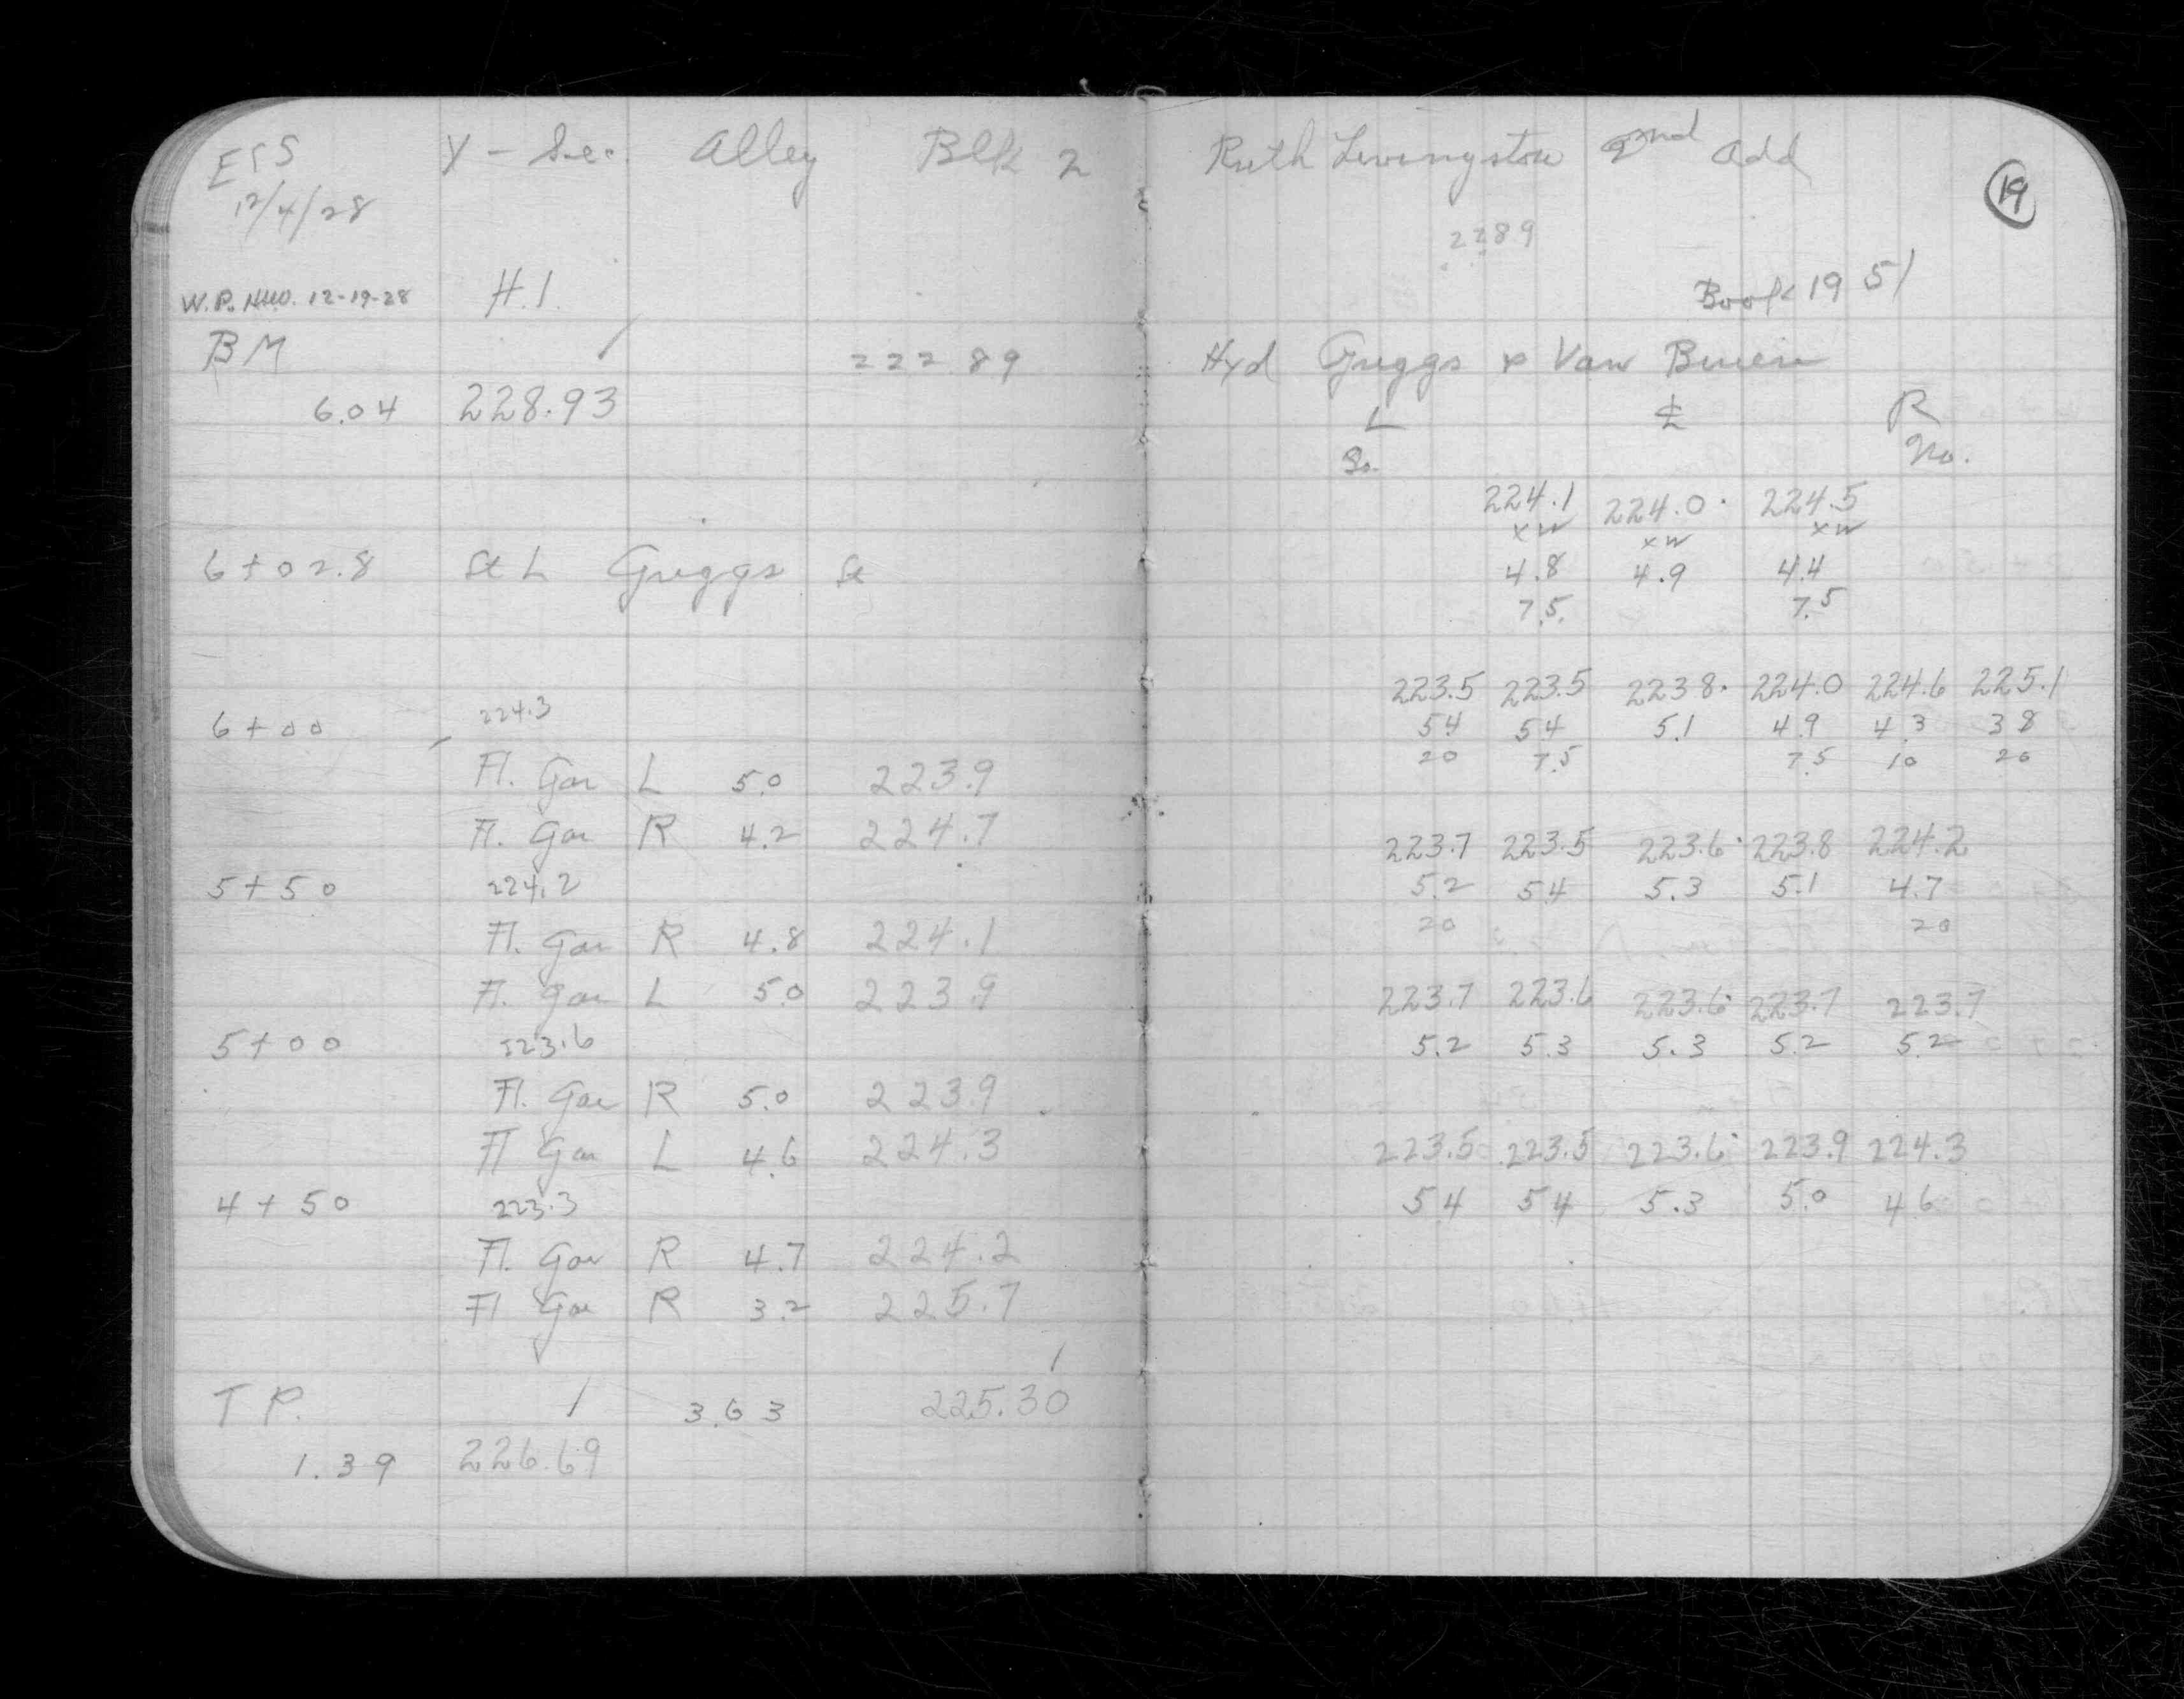 ETS X-Sec. Alley Blk 2
12/4/28
W.P. NHO. 12-19-28 H.I.
BM 222 89
6.04 228.93
6+02.8 St L Griggs St
6+00 224.3
Fl. Gar L 5.0 223.9
Fl. Gar R 4.2 224.7
5+50 224.2
Fl. Gar R 4.8 224.1
Fl. Gar L 5.0 223.9
5+00 223.6
Fl. Gar R 5.0 223.9
Fl Gar L 4.6 224.3
4+50 223.3
Fl. Gar R 4.7 224.2
Fl Gar R 3.2 225.7
T P. 3.63 225.30
1.39 226.69
Ruth Livingston 2nd Add
19
2289
Book 19 51
Hyd Griggs x Van Buren
L ℄ R
So. No.
224.1 224.0 224.5
xw xw xw
4.8 4.9 4.4
7.5 7.5
223.5 223.5 223 8 224.0 224.6 225.1
5.4 5.4 5.1 4.9 4.3 3 8
20 7.5 7.5 10 20
223.7 223.5 223.6 223.8 224.2
5.2 5.4 5.3 5.1 4.7
20 20
223.7 223.6 223.6 223.7 223.7
5.2 5.3 5.3 5.2 5.2
223.5 223.5 223.6 223.9 224.3
5.4 5.4 5.3 5.0 4.6